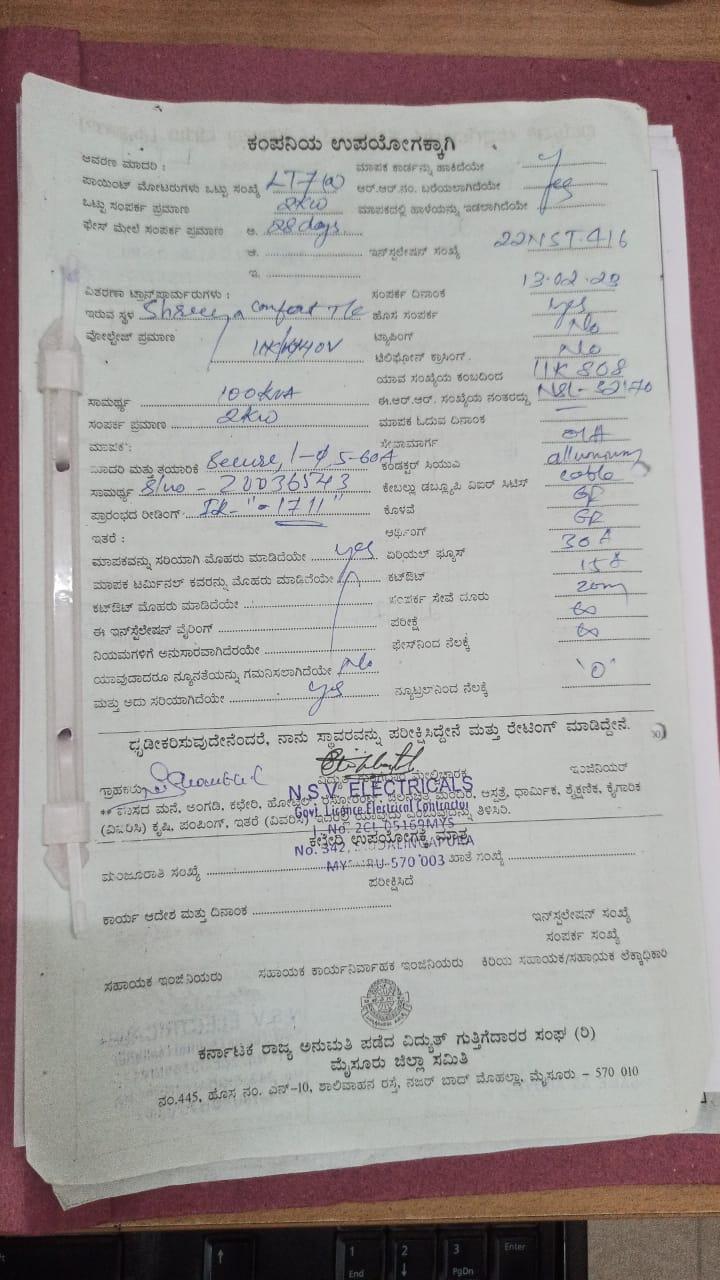 ಕಂಪನಿಯ ಉಪಯೋಗಕ್ಕಾಗಿ
ಆವರಣ ಮಾದರಿ : ಮಾಪಕ ಕಾರ್ಡನ್ನು ಹಾಕಿದೆಯೇ
ಪಾಯಿಂಟ್ ಮೋಟರುಗಳು ಒಟ್ಟು ಸಂಖ್ಯೆ LT7(a) ಆರ್.ಆರ್.ನಂ. ಬರೆಯಲಾಗಿದೆಯೇ yes
ಒಟ್ಟು ಸಂಪರ್ಕ ಪ್ರಮಾಣ 2KW ಮಾಪಕದಲ್ಲಿ ಹಾಳೆಯನ್ನು ಇಡಲಾಗಿದೆಯೇ
ಫೇಸ್ ಮೇಲೆ ಸಂಪರ್ಕ ಪ್ರಮಾಣ ಅ. 28 days
ಆ. ಇನ್‌ಸ್ಟಲೇಷನ್ ಸಂಖ್ಯೆ 22NST416
ಇ.
ವಿತರಣಾ ಟ್ರಾನ್ಸ್‌ಫಾರ್ಮರುಗಳು : ಸಂಪರ್ಕ ದಿನಾಂಕ 13.02.23
ಇರುವ ಸ್ಥಳ Shreeya comfort T/c ಹೊಸ ಸಂಪರ್ಕ yes
ವೋಲ್ಟೇಜ್ ಪ್ರಮಾಣ ಟ್ಯಾಪಿಂಗ್ No
ಟೆಲಿಫೋನ್ ಕ್ರಾಸಿಂಗ್ No
ಯಾವ ಸಂಖ್ಯೆಯ ಕಂಬದಿಂದ 11K 808
ಸಾಮರ್ಥ್ಯ 100KVA ಈ.ಆರ್.ಆರ್. ಸಂಖ್ಯೆಯ ನಂತರದ್ದು
ಸಂಪರ್ಕ ಪ್ರಮಾಣ 2KW ಮಾಪಕ ಓದುವ ದಿನಾಂಕ
ಮಾಪಕ: ಸೇವಾಮಾರ್ಗ OH
ಮಾದರಿ ಮತ್ತು ತಯಾರಿಕೆ Secure, 1-Φ 5-60A ಕಂಡಕ್ಟರ್ ಸಿಯುವಿ
ಸಾಮರ್ಥ್ಯ S/no - 20036543 ಕೇಬಲ್ಲು ಡಬ್ಲ್ಯೂಪಿ ವಿಐರ್ ಸಿಟಿಸ್ cable
ಪ್ರಾರಂಭದ ರೀಡಿಂಗ್ IR- "= 1711" ಕೊಳವೆ
ಇತರೆ : ಅರ್ಥಿಂಗ್
ಮಾಪಕವನ್ನು ಸರಿಯಾಗಿ ಮೊಹರು ಮಾಡಿದೆಯೇ yes ಏರಿಯಲ್ ಫ್ಯೂಸ್ 30A
ಮಾಪಕ ಟರ್ಮಿನಲ್ ಕವರನ್ನು ಮೊಹರು ಮಾಡಿದೆಯೇ ಕಟ್‌ಔಟ್ 15A
ಕಟ್‌ಔಟ್ ಮೊಹರು ಮಾಡಿದೆಯೇ ಸಂಪರ್ಕ ಸೇವೆ ದೂರು 20m
ಈ ಇನ್‌ಸ್ಟಲೇಷನ್ ವೈರಿಂಗ್ ಪರೀಕ್ಷೆ ∞
ನಿಯಮಗಳಿಗೆ ಅನುಸಾರವಾಗಿದೆರೆಯೇ ಫೇಸ್‌ನಿಂದ ನೆಲಕ್ಕೆ ∞
ಯಾವುದಾದರೂ ನ್ಯೂನತೆಯನ್ನು ಗಮನಿಸಲಾಗಿದೆಯೇ No
ಮತ್ತು ಅದು ಸರಿಯಾಗಿದೆಯೇ yes ನ್ಯೂಟ್ರಲ್‌ನಿಂದ ನೆಲಕ್ಕೆ '0'
ಧೃಡೀಕರಿಸುವುದೇನೆಂದರೆ, ನಾನು ಸ್ಥಾವರವನ್ನು ಪರೀಕ್ಷಿಸಿದ್ದೇನೆ ಮತ್ತು ರೇಟಿಂಗ್ ಮಾಡಿದ್ದೇನೆ.
ಗ್ರಾಹಕರು ಮೇಲ್ವಿಚಾರಕ ಇಂಜಿನಿಯರ್
N.S.V. ELECTRICALS
Govt. Licence Electrical Contractor
ಮನೆ, ಅಂಗಡಿ, ಕಛೇರಿ, ಹೋಟೆಲ್, ಆಸ್ಪತ್ರೆ, ಧಾರ್ಮಿಕ, ಶೈಕ್ಷಣಿಕ, ಕೈಗಾರಿಕ
(ವಿವರಿಸಿ) ಕೃಷಿ, ಪಂಪಿಂಗ್, ಇತರೆ (ವಿವರಿಸಿ) ಇದರಲ್ಲಿ ಯಾವುದು ಎಂಬುವುದನ್ನು ತಿಳಿಸಿರಿ.
L.No. 2CL 05169MYS
ಕಛೇರಿ ಉಪಯೋಗಕ್ಕೆ ಮಾತ್ರ
No. 342,
ಮಂಜೂರಾತಿ ಸಂಖ್ಯೆ ಖಾತೆ ಸಂಖ್ಯೆ
570 003
ಪರೀಕ್ಷಿಸಿದೆ
ಕಾರ್ಯ ಆದೇಶ ಮತ್ತು ದಿನಾಂಕ
ಇನ್‌ಸ್ಟಲೇಷನ್ ಸಂಖ್ಯೆ
ಸಂಪರ್ಕ ಸಂಖ್ಯೆ
ಸಹಾಯಕ ಇಂಜಿನಿಯರು ಸಹಾಯಕ ಕಾರ್ಯನಿರ್ವಾಹಕ ಇಂಜಿನಿಯರು ಕಿರಿಯ ಸಹಾಯಕ/ಸಹಾಯಕ ಲೆಕ್ಕಾಧಿಕಾರಿ
ಕರ್ನಾಟಕ ರಾಜ್ಯ ಅನುಮತಿ ಪಡೆದ ವಿದ್ಯುತ್ ಗುತ್ತಿಗೆದಾರರ ಸಂಘ (ರಿ)
ಮೈಸೂರು ಜಿಲ್ಲಾ ಸಮಿತಿ
ನಂ.445, ಹೊಸ ನಂ. ಎನ್-10, ಶಾಲಿವಾಹನ ರಸ್ತೆ, ನಜರ್ ಬಾದ್ ಮೊಹಲ್ಲಾ, ಮೈಸೂರು – 570 010
1 End
2
3 PgDn
Enter